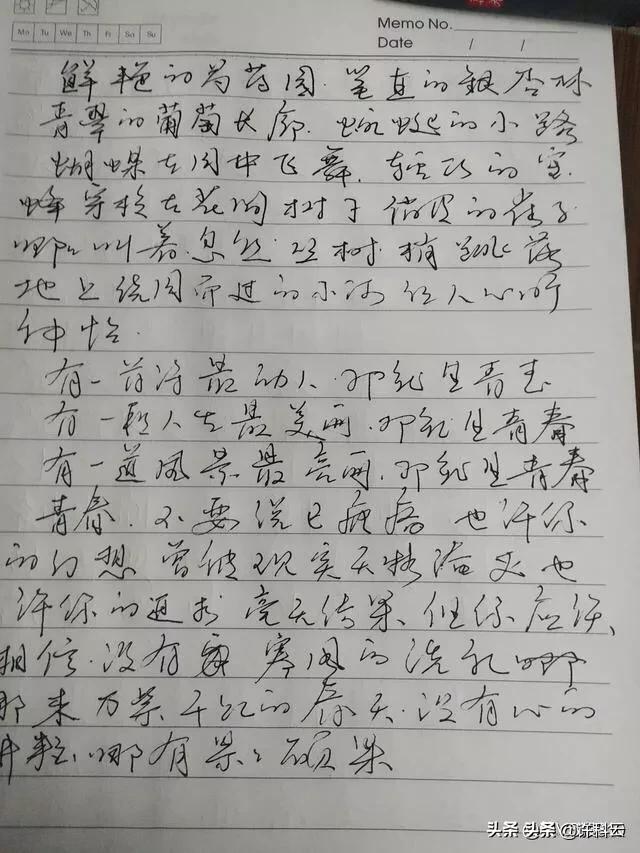 Memo No.
Mo Tu We Th Fr Sa Su
Date / /
鲜艳的芍药园.笔直的银杏林
青翠的葡萄长廊.蜿蜒的小路
蝴蝶在园中飞舞.轻巧的蜜
蜂穿梭在花间树于俏皮的雀子
叫着忽然从树梢跳落
地上绕园而过的小河 令人心旷
神怡.
有一首诗最动人.那就是青春
有一段人生最美丽.那就是青春
有一道风景最亮丽.那就是青春
青春.不要说已疲痞 也许你
的幻想曾被现实无情 也
许你的追求 毫无结果 但你应该
相信.没有 寒风的洗礼哪
那来万紫千红的春天.没有心的
耕耘.哪有累累硕果
头条 头条